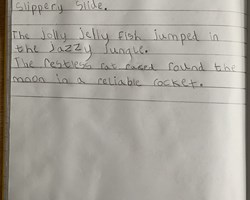 Slippery Slide.
The Jolly Jelly Fish jumped in
the Jazzy Jungle.
The restless ras raced round the
moon in a reliable rocket.